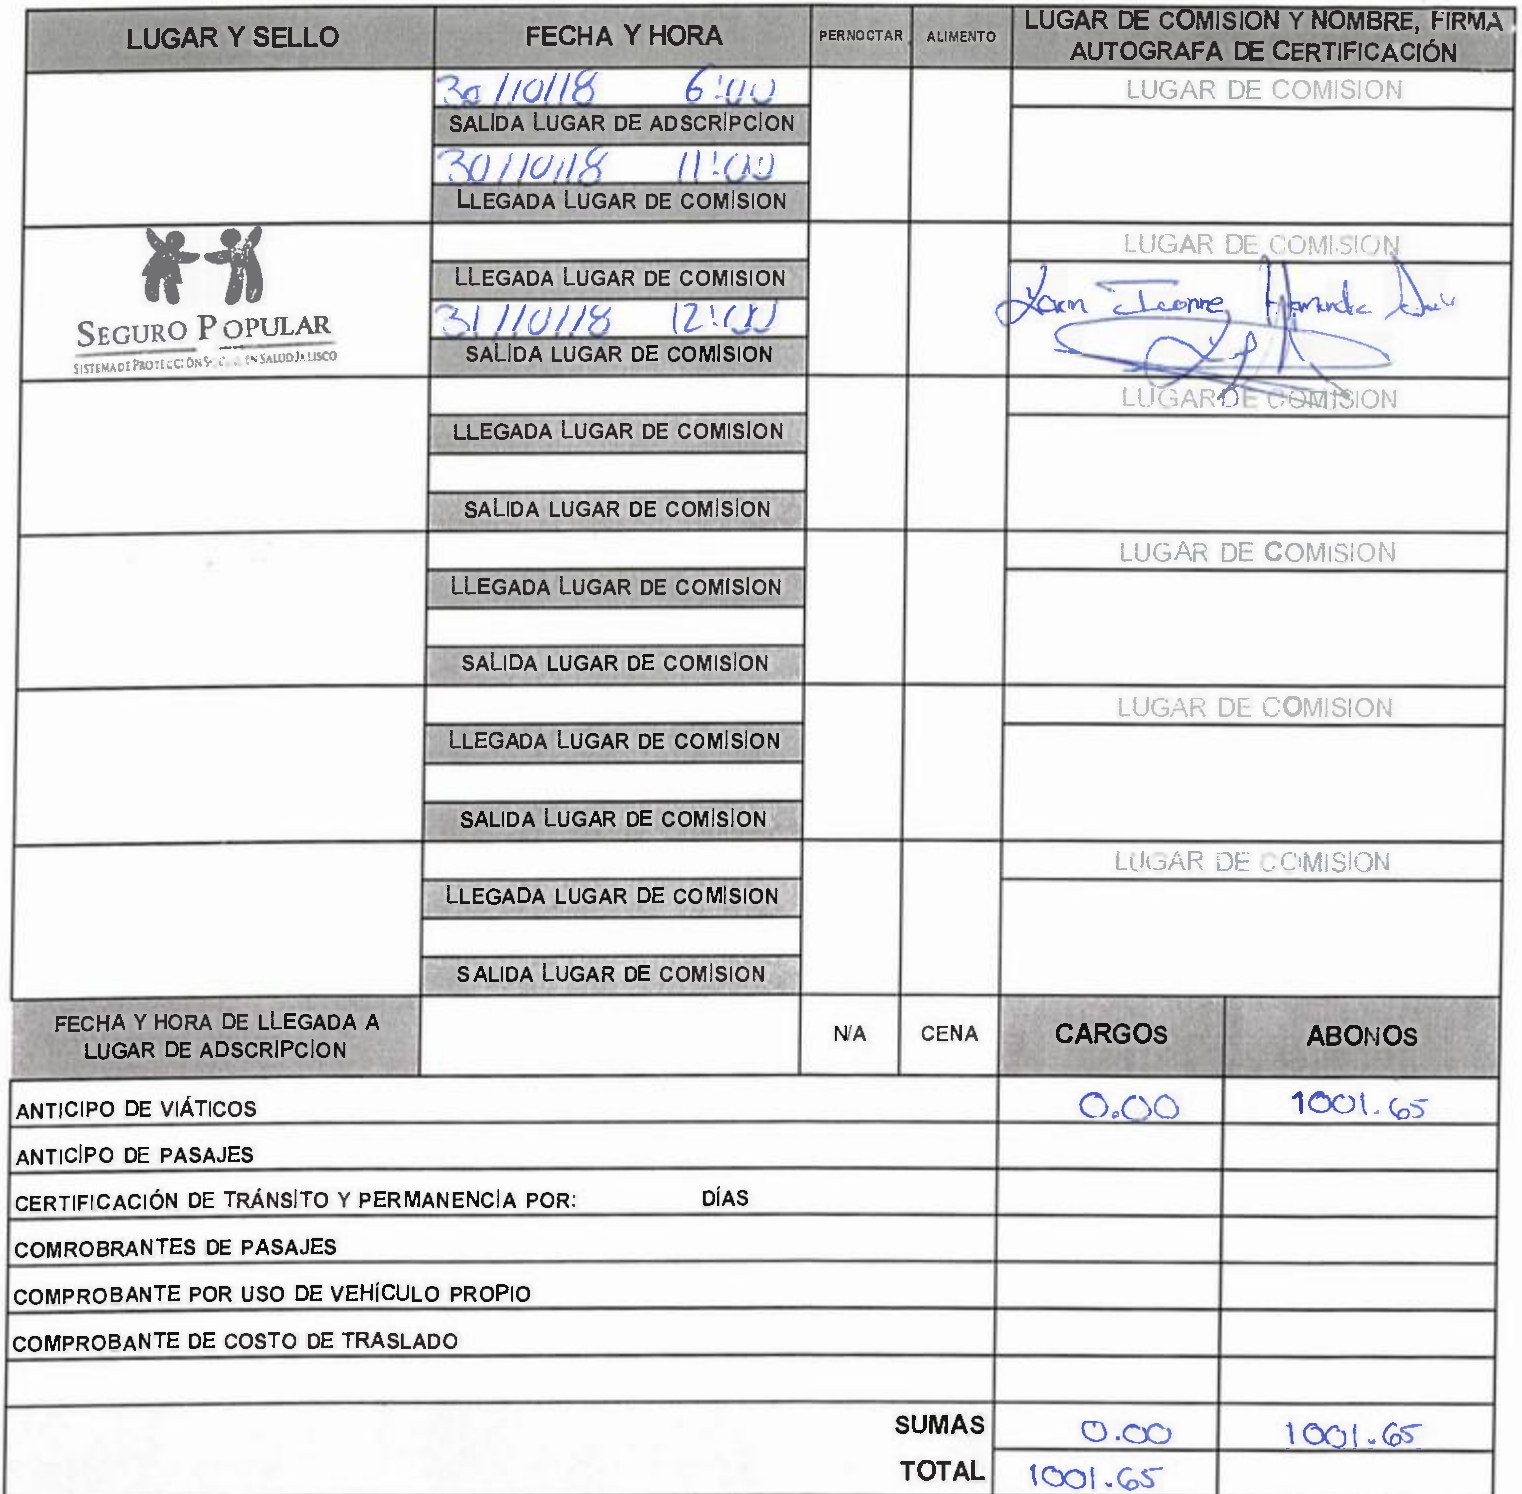 LUGAR Y SELLO FECHA Y HORA PERNOCTAR ALIMENTO LUGAR DE COMISION Y NOMBRE, FIRMA AUTOGRAFA DE CERTIFICACIÓN
30/10/18 6:00 LUGAR DE COMISION
SALIDA LUGAR DE ADSCRIPCION
30/10/18 11:00
LLEGADA LUGAR DE COMISION
LUGAR DE COMISION
LLEGADA LUGAR DE COMISION
SEGURO POPULAR
SISTEMA DE PROTECCIÓN EN SALUD JALISCO
31/10/18 12:00
SALIDA LUGAR DE COMISION
LUGAR DE COMISION
LLEGADA LUGAR DE COMISION
SALIDA LUGAR DE COMISION
LUGAR DE COMISION
LLEGADA LUGAR DE COMISION
SALIDA LUGAR DE COMISION
LUGAR DE COMISION
LLEGADA LUGAR DE COMISION
SALIDA LUGAR DE COMISION
LUGAR DE COMISION
LLEGADA LUGAR DE COMISION
SALIDA LUGAR DE COMISION
FECHA Y HORA DE LLEGADA A
LUGAR DE ADSCRIPCION
N/A CENA CARGOS ABONOS
ANTICIPO DE VIÁTICOS 0.00 1001.65
ANTICIPO DE PASAJES
CERTIFICACIÓN DE TRÁNSITO Y PERMANENCIA POR: DÍAS
COMROBRANTES DE PASAJES
COMPROBANTE POR USO DE VEHÍCULO PROPIO
COMPROBANTE DE COSTO DE TRASLADO
SUMAS 0.00 1001.65
TOTAL 1001.65